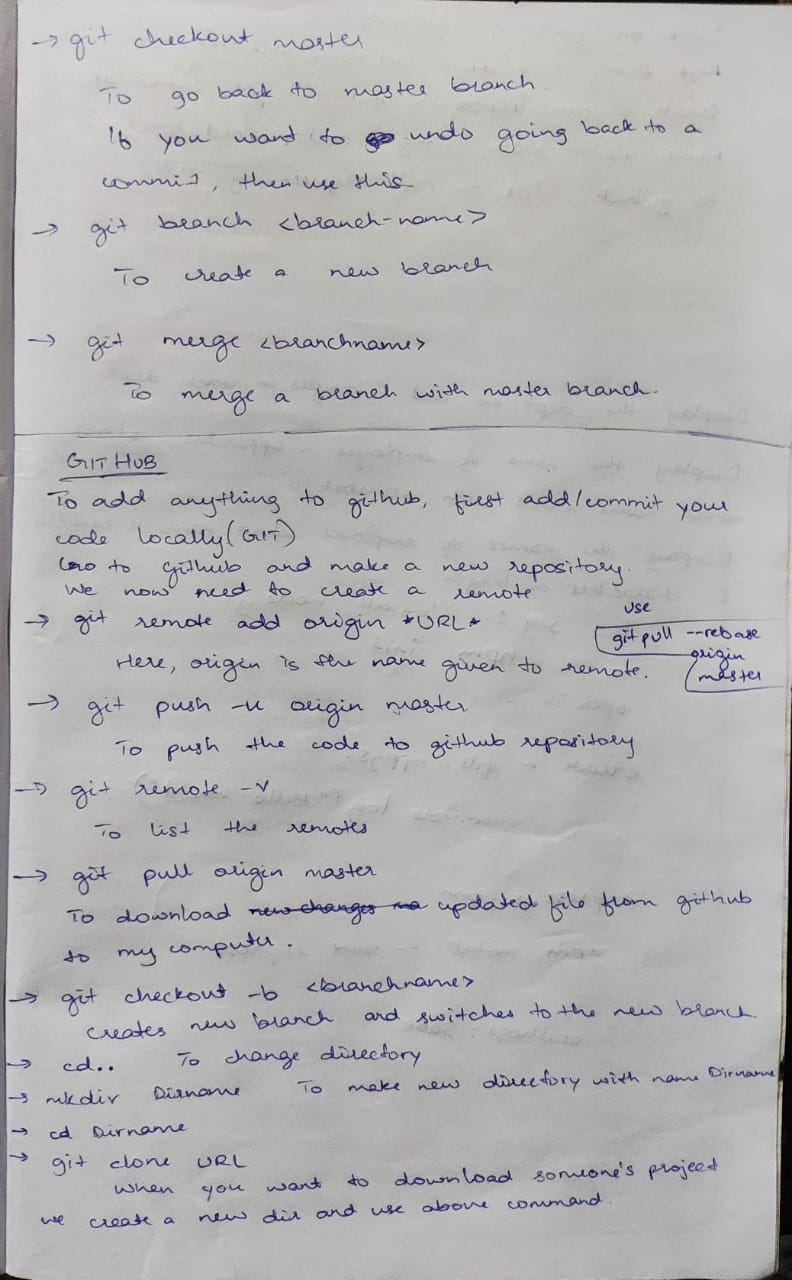 → git checkout master
To go back to master branch.
If you want to undo going back to a
commit, then use this
→ git branch <branch-name>
To create a new branch
→ git merge <branchname>
To merge a branch with master branch.
GITHUB
To add anything to github, first add/commit your
code locally (GIT)
Go to github and make a new repository.
We now need to create a remote
→ git remote add origin *URL*
Here, origin is the name given to remote.
use
git pull --rebase
origin
master
→ git push -u origin master
To push the code to github repository
→ git remote -v
To list the remotes
→ git pull origin master
To download new changes updated file from github
to my computer.
→ git checkout -b <branchname>
creates new branch and switches to the new branch.
→ cd.. To change directory
→ mkdir Dirname To make new directory with name Dirname
→ cd Dirname
→ git clone URL
When you want to download someone's project
we create a new dir and use above command.